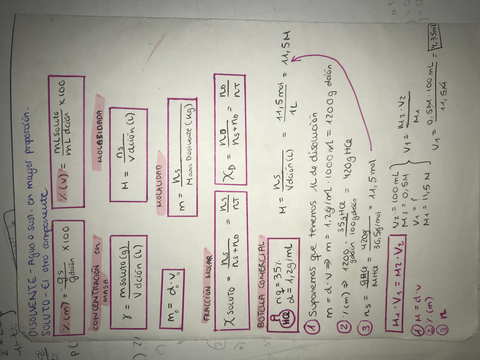 DISOLVENTE - Agua o sust. en mayor proporción.
SOLUTO - El otro componente.
%(m) = gs / gdción × 100
%(V) = mLsoluto / mL dción × 100
CONCENTRACIÓN EN MASA
MOLARIDAD
γ = m soluto (g) / V dción (L)
M = ns / V dción (L)
MOLALIDAD
m = d · v
m = ns / Masa Disolvente (Kg)
FRACCIÓN MOLAR
X SOLUTO = ns / ns + nD = ns / nT
XD = nD / ns + nD = nD / nT
BOTELLA COMERCIAL
HCl
riq = 35%
d = 1,2g/mL
M = ns / V dción (L) = 11,5 mol / 1L = 11,5M
① Suponemos que tenemos 1L de disolución
m = d · v ⇒ m = 1,2g/mL · 1000mL = 1200g dción
② %(m) ⇒ 1200 gdción · 35gHCl / 100gdción = 420gHCl
③ ns = gHCl / MHCl = 420g / 36,5g/mol = 11,5 mol
M1 · V1 = M2 · V2
V2 = 100mL
M2 = 0,5M
V1 = ?
M1 = 11,5 M
V1 = M2 · V2 / M1
V1 = 0,5M · 100mL / 11,5M = 4,35mL
① M = d · v
② %(m)
③ n